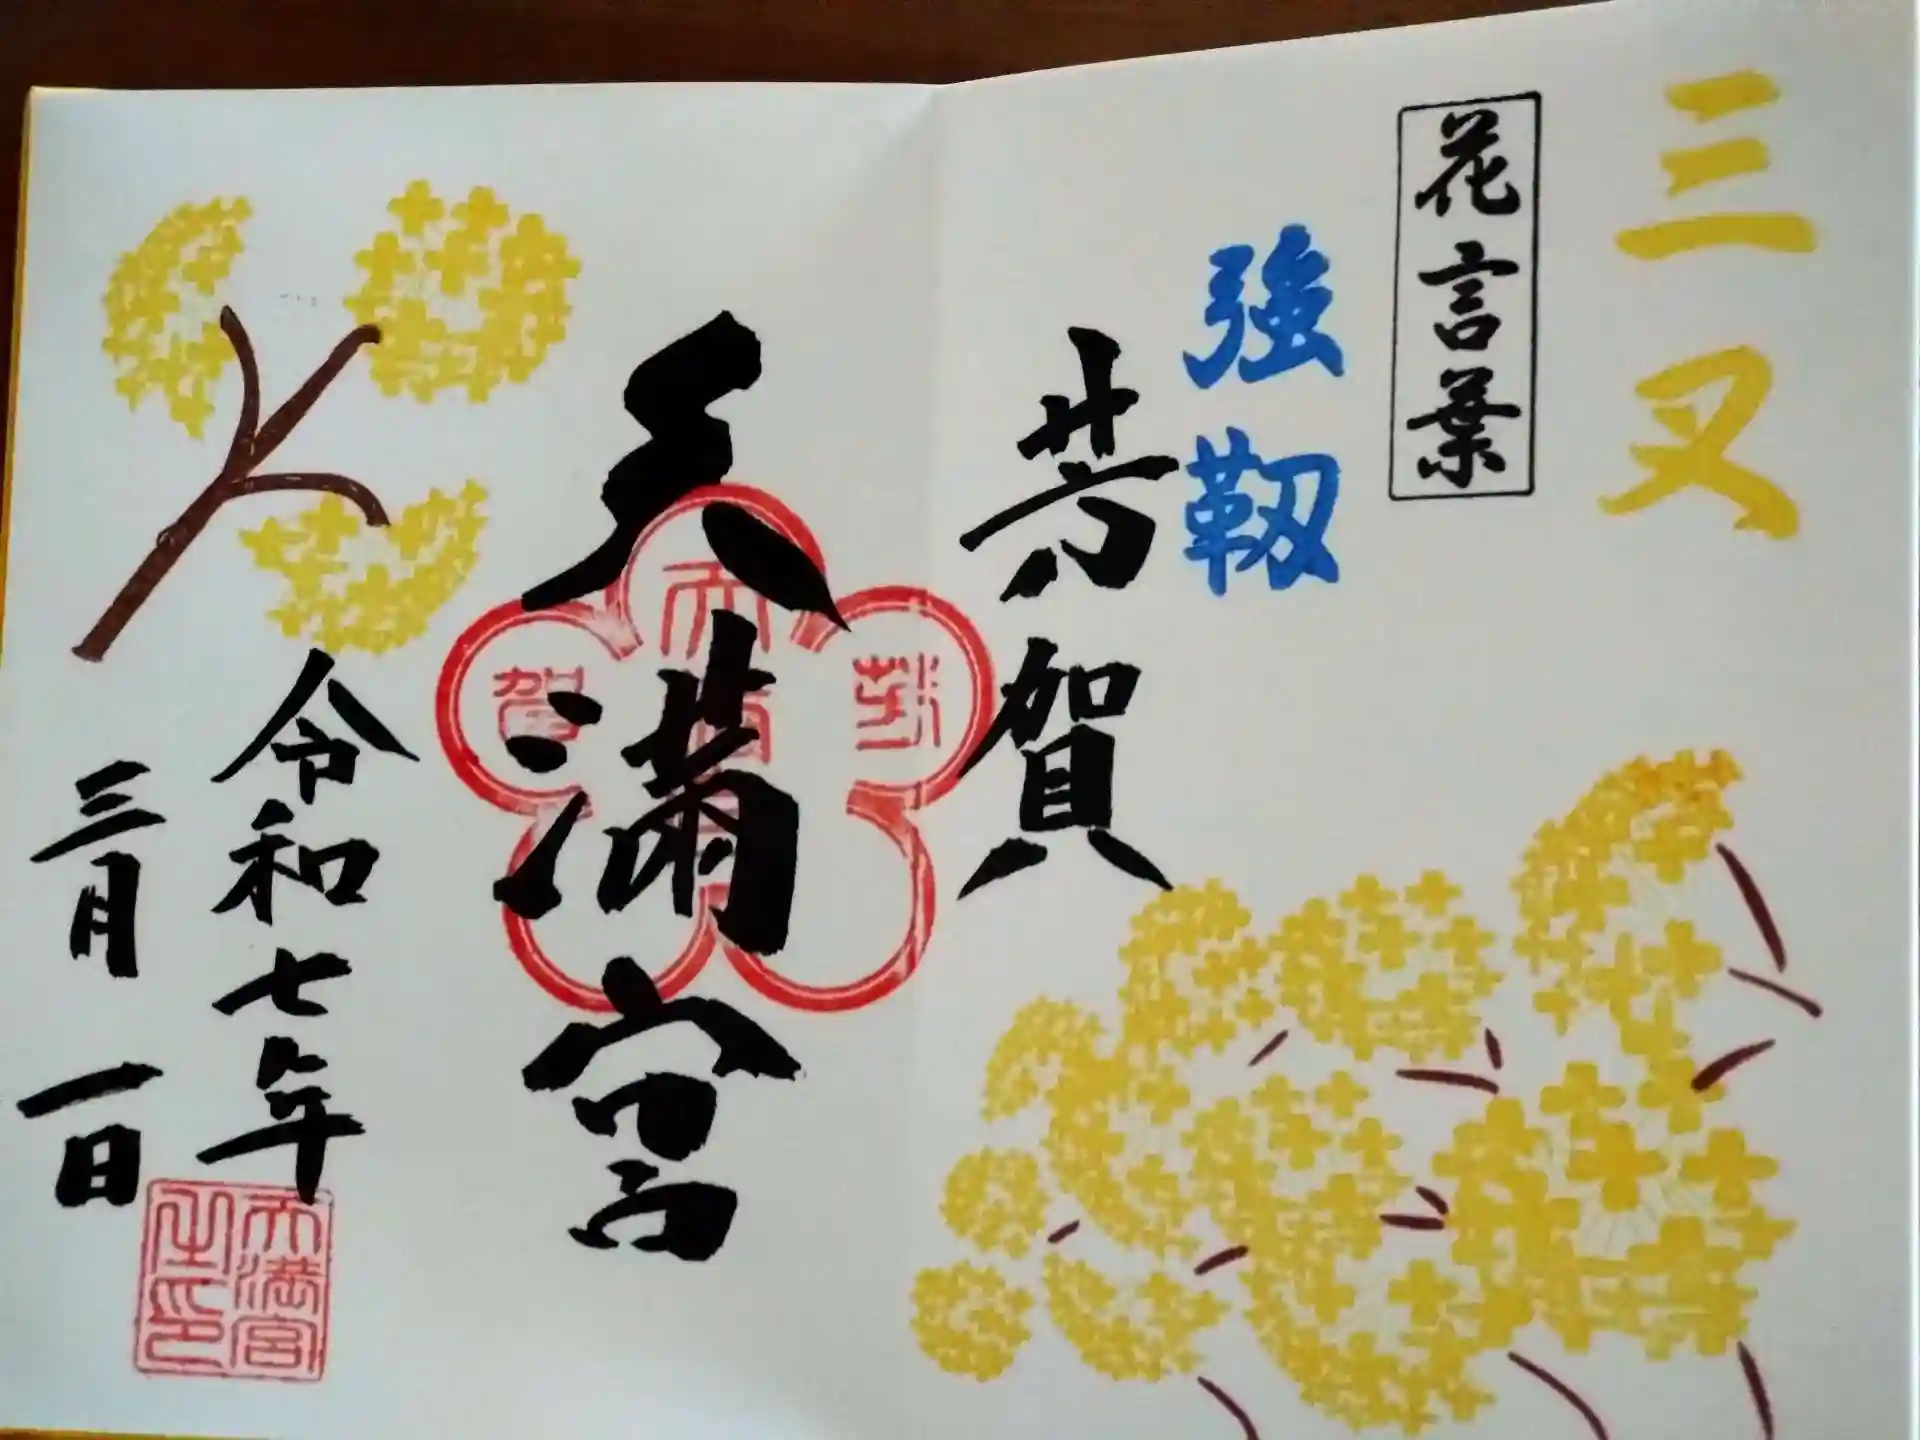 三叉
花言葉
強靭
芳賀
天満宮
芳
賀
天満宮
令和七年
三月一日
天満宮
之印